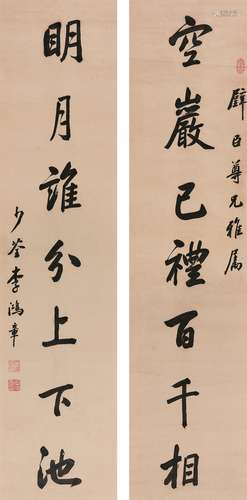 壁臣尊兄雅属
空巖已禮百千相
明月誰分上下池
少荃李鴻章